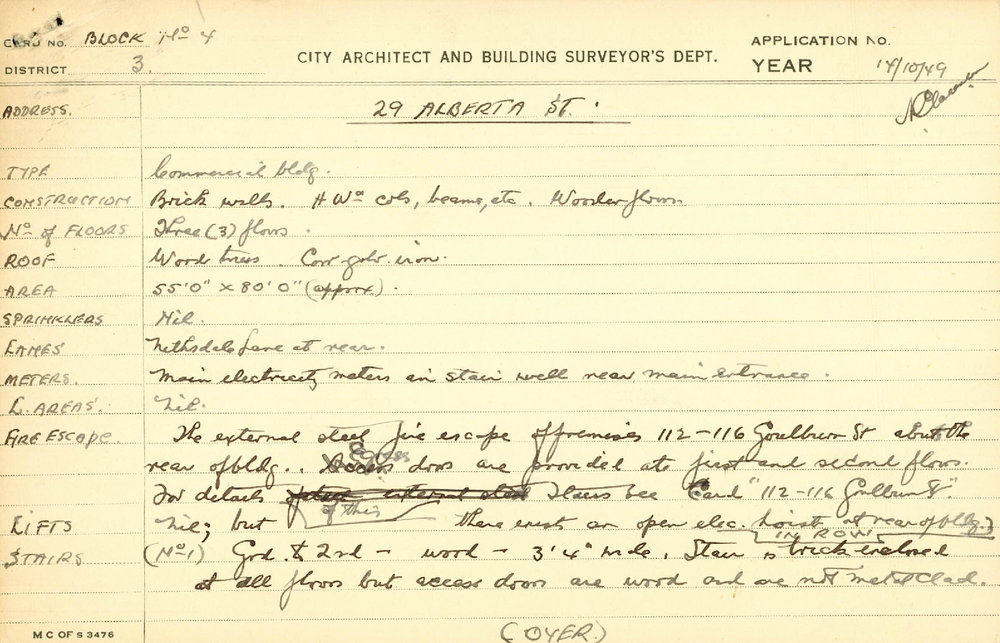 CARD NO. BLOCK No 4
DISTRICT 3.
CITY ARCHITECT AND BUILDING SURVEYOR'S DEPT.
APPLICATION NO.
YEAR 14/10/49
ADDRESS. 29 ALBERTA ST.
TYPE Commercial bldg.
CONSTRUCTION Brick walls. HWd cols, beams, etc. Wooden floors
No of FLOORS Three (3) floors.
ROOF Wood truss. Corr galv. iron.
AREA 55'0" x 80'0" (approx).
SPRINKLERS Nil.
LANES Nithsdale Lane at rear.
METERS. Main electricity meters in stair well near main entrance.
L. AREAS. Nil.
FIRE ESCAPE. The external steel fire escape of premises 112-116 Goulburn St abuts the
rear of bldg.. Access Egress doors are provided at first and second floors.
For details of this external steel stairs see Card "112-116 Goulburn St."
LIFTS Nil; but there exists an open elec. hoist at rear of bldg.)
IN ROW
STAIRS (No 1) Grd. & 2nd - wood - 3'4" wide. Stair is brick enclosed
at all floors but access doors are wood and are not metal clad.
M C OF S 3476
(OVER.)